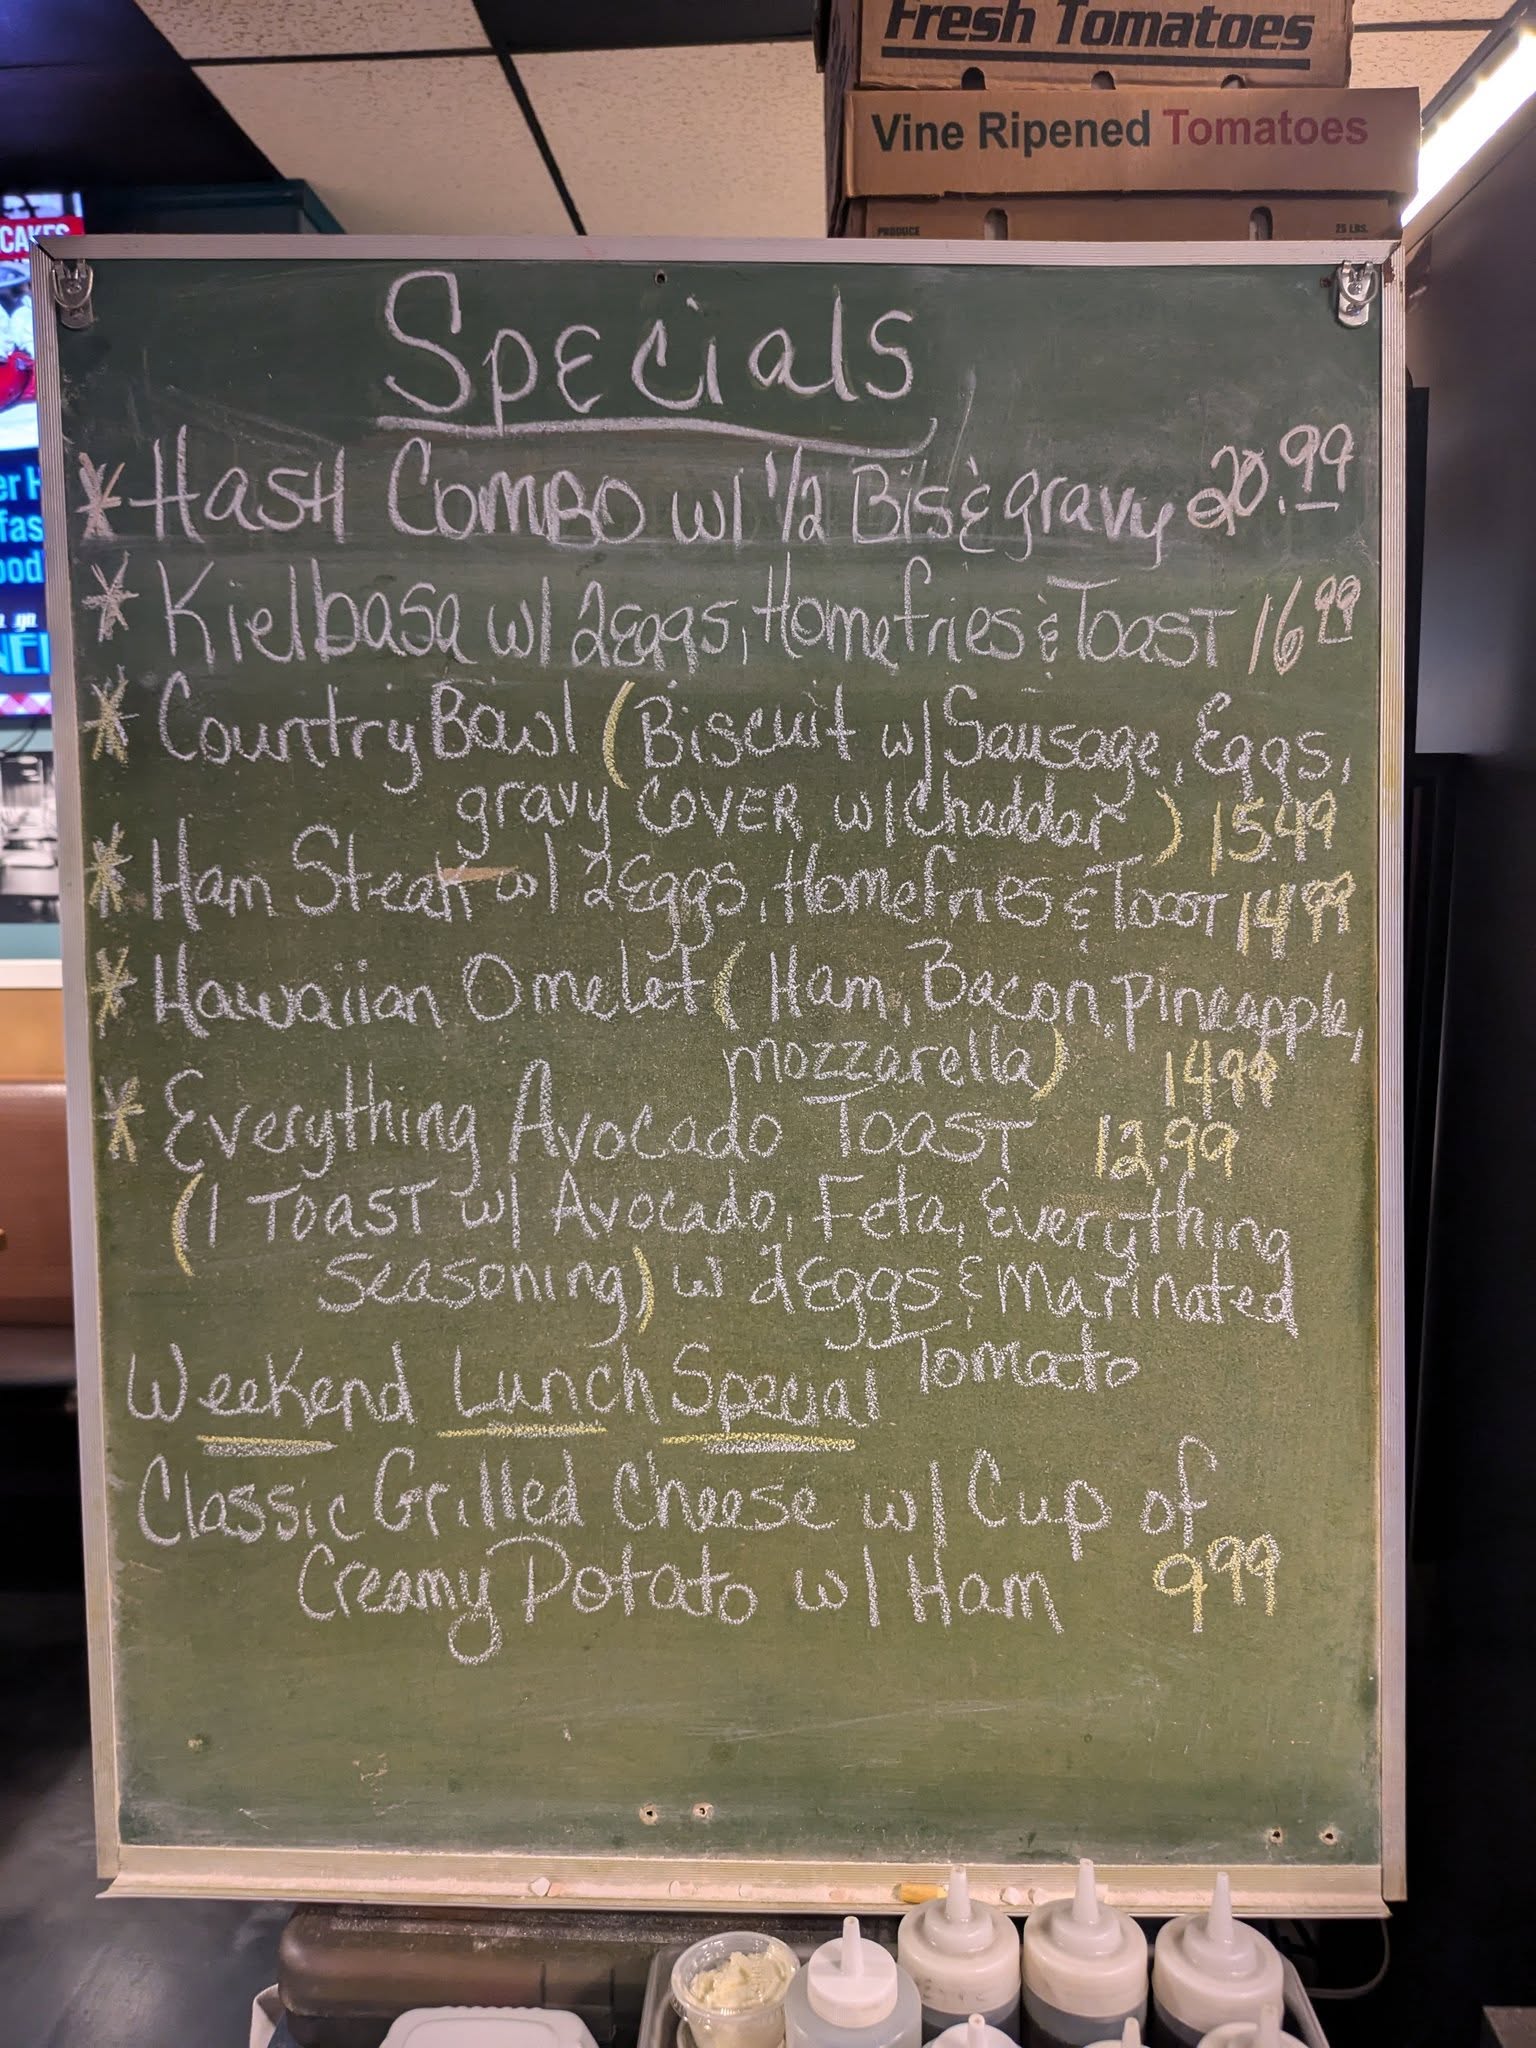 Fresh Tomatoes
Vine Ripened Tomatoes
PRODUCE
25 LBS.
CAKES
Specials
* Hash Combo w/ 1/2 Bis & gravy 20.99
* Kielbasa w/ 2 Eggs, Homefries & Toast 16 99
* Country Bowl (Biscuit w/ Sausage, Eggs,
gravy COVER w/ Cheddar) 15.49
* Ham Steak w/ 2 Eggs, Homefries & Toast 14 99
* Hawaiian Omelet (Ham, Bacon, pineapple,
mozzarella) 14 99
* Everything Avocado Toast 12.99
(1 Toast w/ Avocado, Feta, Everything
Seasoning) w 2 Eggs & Marinated
Tomato
Weekend Lunch Special
Classic Grilled Cheese w/ Cup of
Creamy Potato w/ Ham 9 99